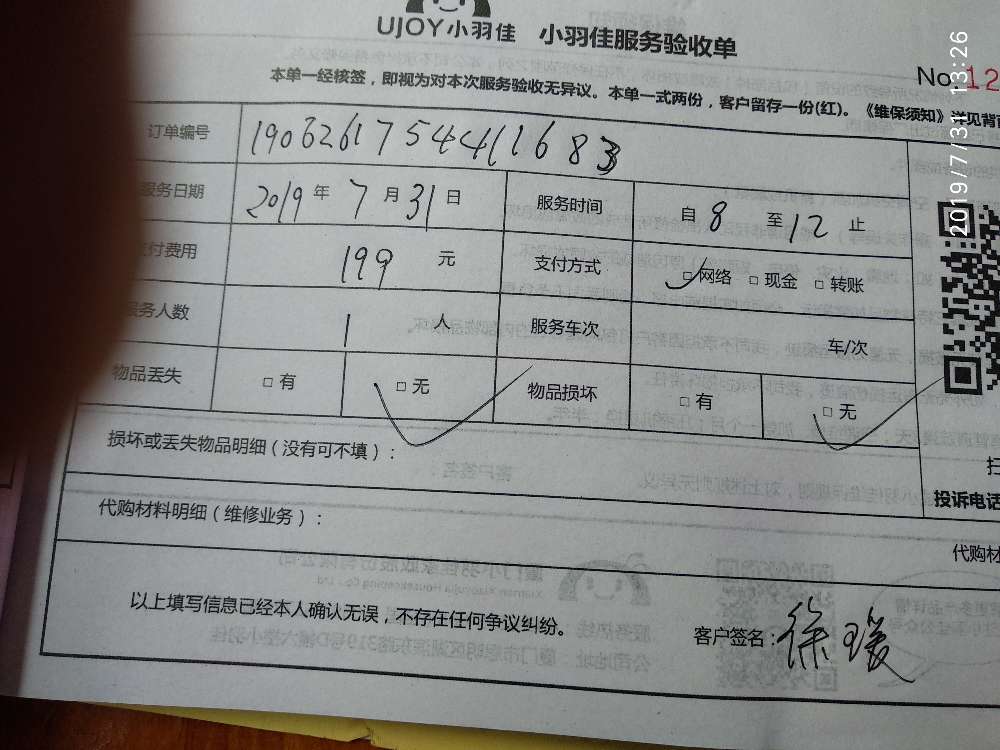 UJOY小羽佳 小羽佳服务验收单
No 12
本单一经核签，即视为对本次服务验收无异议。本单一式两份，客户留存一份(红)。《维保须知》详见背面
订单编号 1906261754411683
服务日期 2019年 7月31日 服务时间 自8至12止
支付费用 199 元 支付方式 □网络 □现金 □转账
服务人数 1 人 服务车次 车/次
物品丢失 □有 □无 物品损坏 □有 □无
损坏或丢失物品明细（没有可不填）：
扫
投诉电话
代购材料明细（维修业务）：
代购材
以上填写信息已经本人确认无误，不存在任何争议纠纷。 客户签名：徐瑷
2019/7/31 13:26